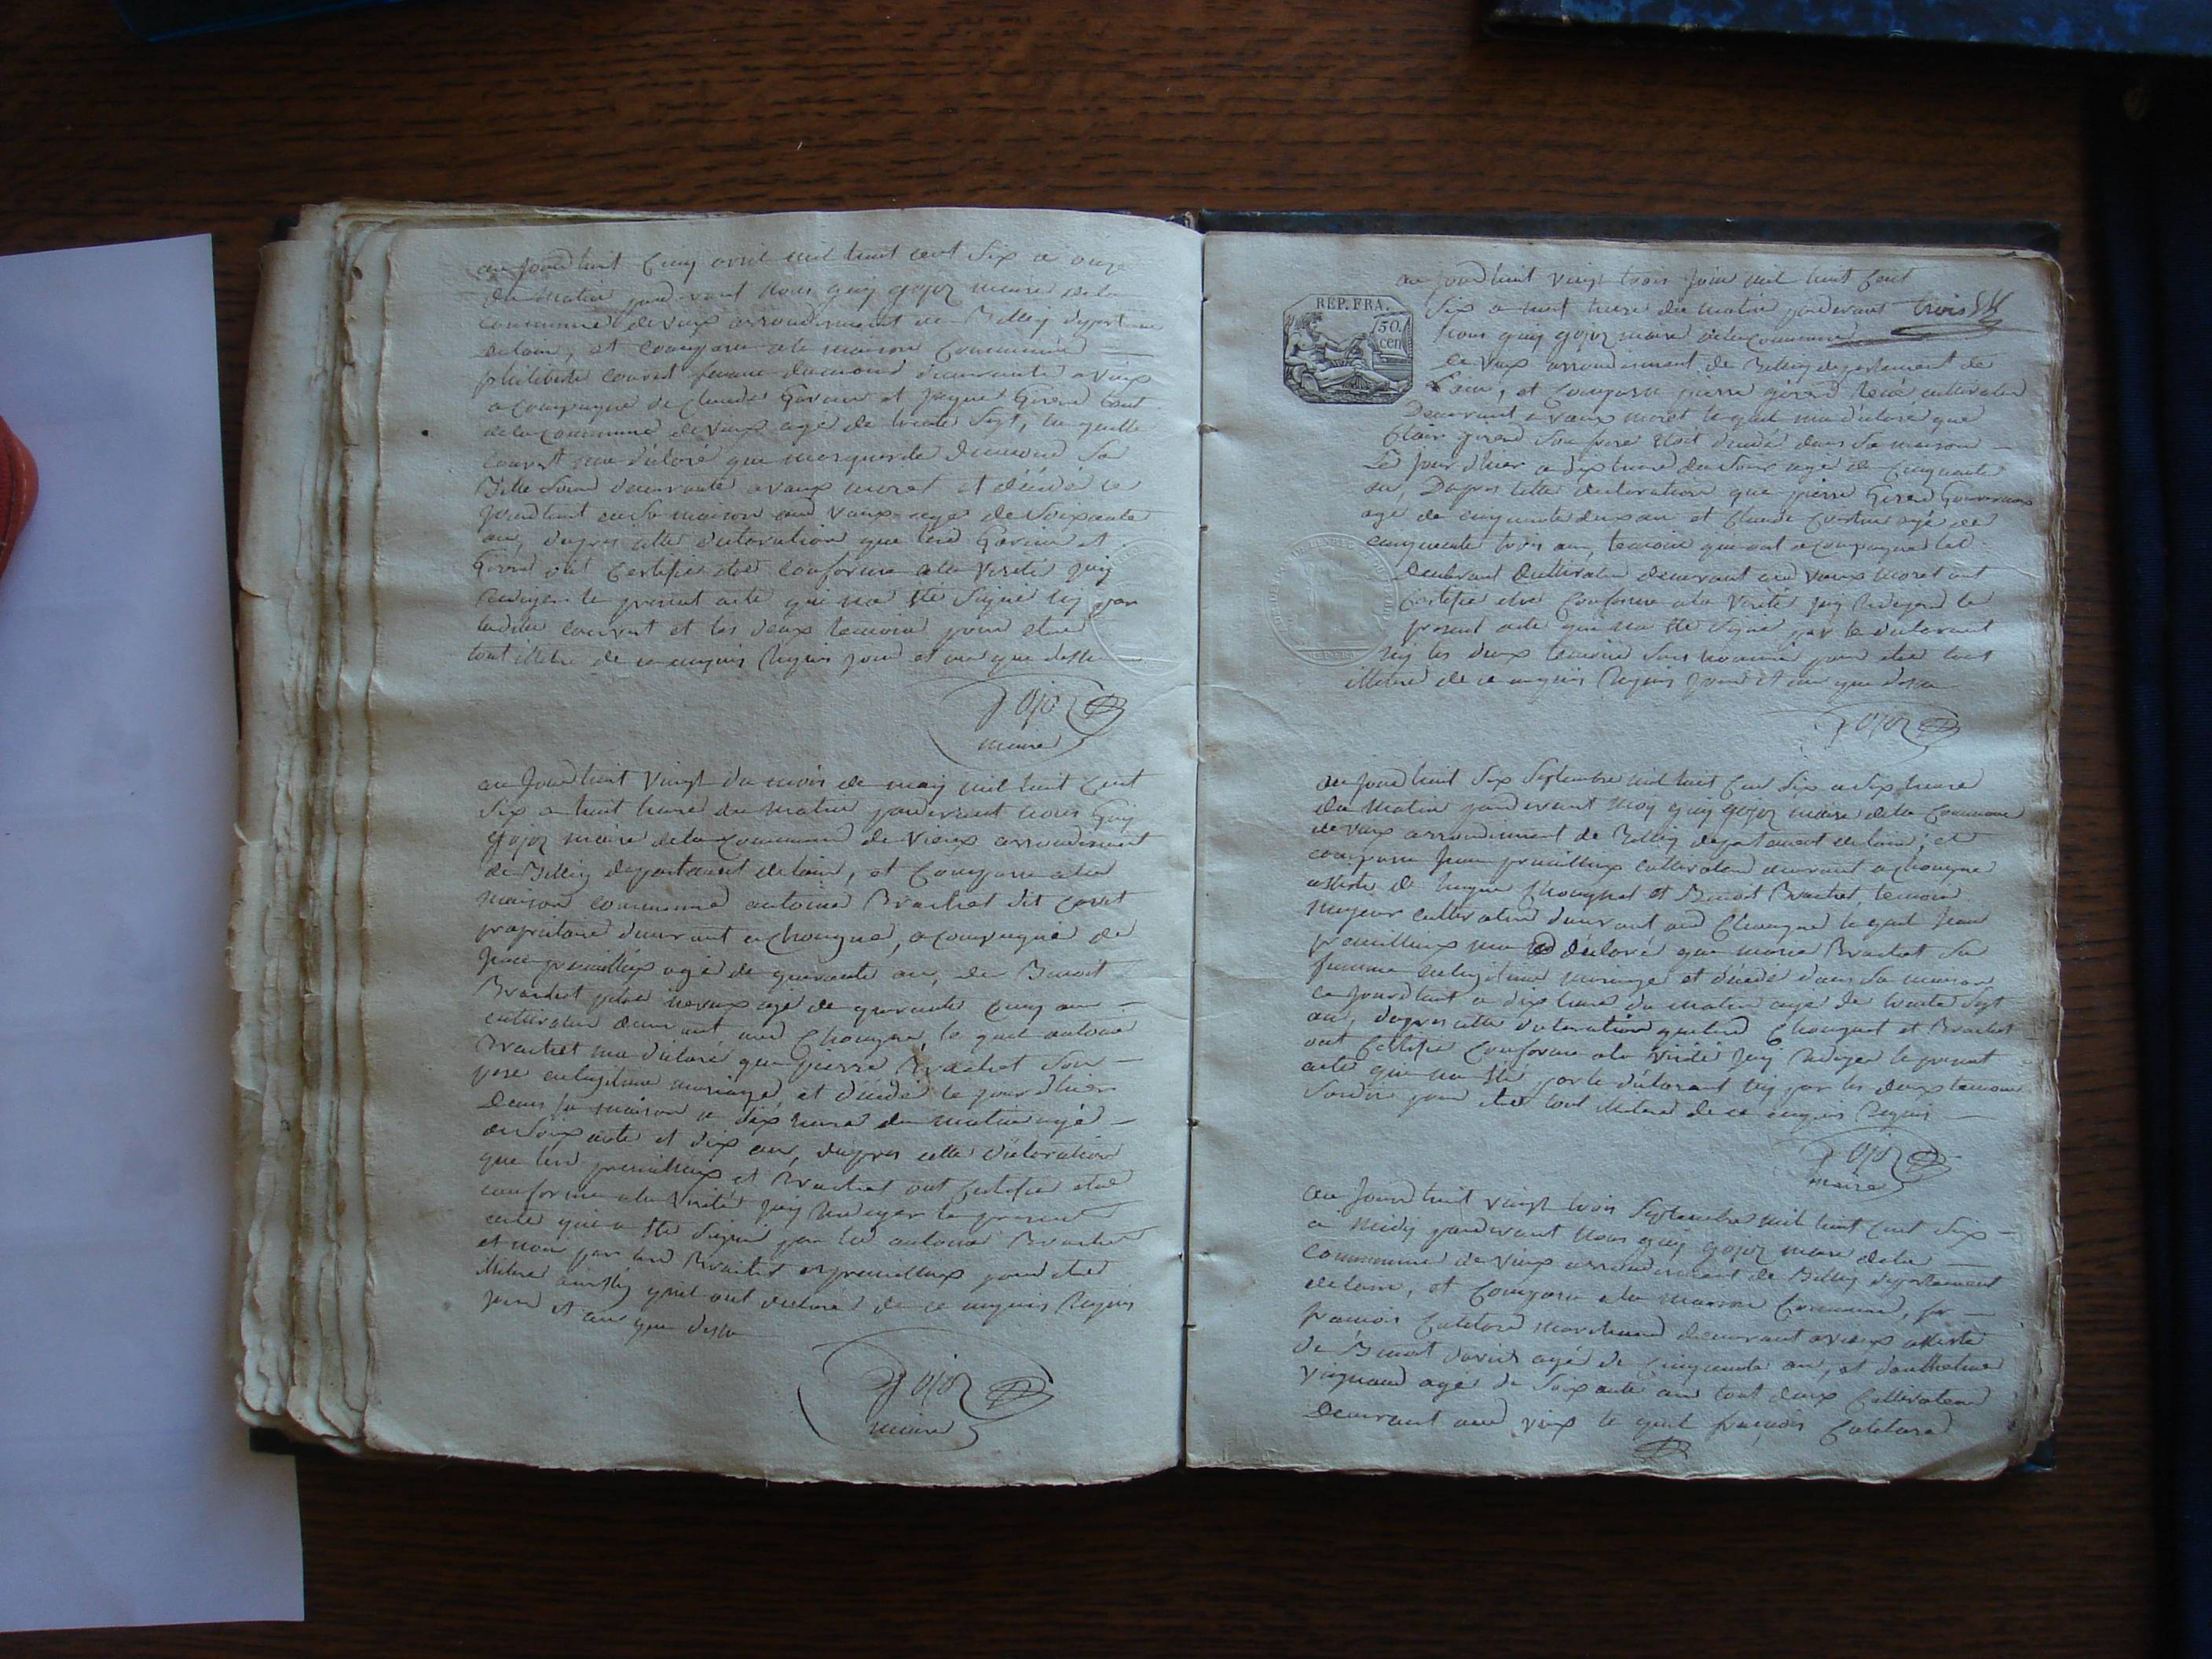 au jourdhuit cinq avril mil huit cent six a onze
du matin pardevant nous guy gojoz maire de la
commune de vieux arrondisement de Belley departement
delain, et comparu a la maison commune
philiberte convert femme dumond demeurante a vieux
acompagne de claude Gorin et Jaques Girerd tout
de la commune de vieux age de trente sept, la quelle
convert ma déclaré que marguerite dumond sa
Belle soeur demeurante a vaux moret et décédé ce
jourdhuit en sa maison aud vaux agé de soixante
an, dapres cette déclaration que led Gorin et
Girerd ont certifié etre conforme a la verité jay
rediger le present acte qui na été signé ny par
ladite convert et les deux temoins pour etre
tout illetré de ce enquis Requis jour et an que dessu
gojoz
maire
au jourdhuit vingt du mois de may mil huit cent
six a huit heure du matin pardevant nous Guy
gojoz maire de la commune de vieux arrondisement
de Belley departement delain, et comparu a la
maison commune antoine Brachet dit
propriétaire demeurant a chongne, acompagne de
Jean premillieux agé de quarante an, de Benoit
Brachet agé de quarante cinq an
cultivateur demeurant aud chongne, le quel antoine
Brachet ma déclaré que pierre Brachet son
pere en legitime mariage, et décédé le jour dhier
dans sa maison a dix heure du matin agé
de soixante et dix an, dapres cette déclaration
que led premillieux et Brachet ont certifié etre
conforme a la verité jay rediger le present
acte qui a été signé par led antoine Brachet
et non par led Brachet et premillieux pour etre
illetré ainsy quil ont declaré de ce enquis Requis
jour et an que dessu
gojoz
maire
au jourdhuit vingt trois juin mil huit cent
REP. FRA.
50.
cen
six a neuf heure du matin pardevant
trois
nous guy gojoz maire de la commune
de vieux arrondisement de Belley departement de
Lain, et comparu pierre girerd cultivateur
demeurant a vaux moret le quel ma déclaré que
Claire girerd etoit décédé dans sa maison
Le jour dhier a dix heure du soir agé de cinquante
an, Dapres cette declaration que pierre Girerd
agé de cinquante deux an et Claude agé de
cinquante trois an, temoins qui ont acompagne led
declarant cultivateur demeurant aud vaux moret ont
certifié etre conforme a la verité jay rediger le
present acte qui na été signé par le declarant
ny les deux temoins pour etre tout
illetré de ce enquis Requis jour et an que dessu
gojoz
au jourdhuit six septembre mil huit cent six a dix heure
du matin pardevant moy guy gojoz maire de la commune
de vieux arrondisement de Belley departement delain, et
comparu Jean premillieux cultivateur demeurant a chongne
assisté de chougnet et Benoit Brachet, temoins
majeur cultivateur demeurant aud chongne le quel Jean
premillieux ma déclaré que marie Brachet sa
femme en legitime mariage et décédé dans sa maison
ce jourdhuit a dix heure du matin agé de trente sept
an, dapres cette declaration que led chougnet et Brachet
ont certifié conforme a la verité jay rediger le present
acte qui na été par le declarant ny par les deux temoins
pour etre tout illetré de ce enquis Requis
gojoz
maire
au jourdhuit vingt trois septembre mil huit cent six
a midy pardevant nous guy gojoz maire de la
commune de vieux arrondisement de Belley departement
delain, et comparu a la maison commune,
francois marchand demeurant a vieux assisté
de Benoit agé de cinquante an, et danthelme
agé de soixante an tout deux cultivateur
demeurant aud vieux le quel françois